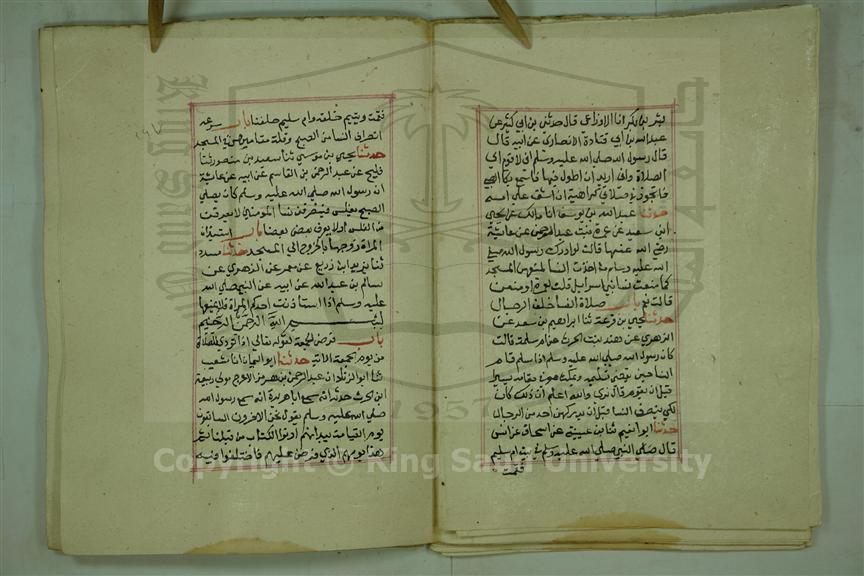 بشر بن بكر انا الاوزاعي قال حدثني بن ابي كثير عن
عبد الله بن ابي قتادة الانصاري عن ابيه قال
قال رسول الله صلي الله عليه وسلم اني لاقوم الي
الصلاة واني اريد ان اطول فيها فاسمع بكا الصبي
فاتجوز في صلاتي كراهية ان اشق علي امه
حدثنا عبد الله بن يوسف انا مالك عن يحيي
ابن سعيد عن عمرة بنت عبد الرحمن عن عائشة
رضي الله عنها قالت لو ادرك رسول الله صلي
الله عليه وسلم ما احدث النسا لمنعهن المسجد
كما منعت نسا بني اسرايل قلت لعمرة اومنعن
قالت نعم باب صلاة النسا خلف الرجال
حدثنا يحيي بن قزعة ثنا ابراهيم بن سعد عن
الزهري عن هند بنت الحرث عن ام سلمة قالت
كان رسول الله صلي الله عليه وسلم اذا سلم قام
النسا حين يقضي تسليمه ويمكث هو في مقامه يسيرا
قبل ان يقوم قال نري والله اعلم ان ذلك كان
لكي ينصرف النسا قبل ان يدركهن احد من الرجال
حدثنا ابو نعيم ثنا بن عيينة عن اسحاق عن انس
قال صلي النبي صلي الله عليه وسلم في بيت ام سليم
فقمت
فقمت ويتيم خلفه وام سليم خلفنا باب سرعة
انصراف النسا من الصبح وقلة مقامهن في المسجد
حدثنا يحيي بن موسي ثنا سعيد بن منصور ثنا
فليح عن عبد الرحمن بن القاسم عن ابيه عن عائشة
ان رسول الله صلي الله عليه وسلم كان يصلي
الصبح بغلس فينصرفن نسا المومنين لا يعرفن
من الغلس او لا يعرف بعضهن بعضا باب استيذان
المراة زوجها بالخروج الي المسجد حدثنا مسدد
ثنا يزيد ابن زريع عن معمر عن الزهري عن
سالم بن عبد الله عن ابيه عن النبي صلي الله
عليه وسلم اذا استاذنت احدكم المراة فلا يمنعها
بسم الله الرحمن الرحيم
باب فرض الجمعة لقوله تعالي اذا نودي للصلاة
من يوم الجمعة الاية حدثنا ابو اليمان انا شعيب
ثنا ابو الزناد ان عبد الرحمن بن هرمز الاعرج مولي ربيعة
ابن الحرث حدثه انه سمع ابا هريرة انه سمع رسول الله
صلي الله عليه وسلم يقول نحن الاخرون السابقون
يوم القيامة بيد انهم اوتوا الكتاب من قبلنا ثم
هذا يومهم الذي فرض عليهم فاختلفوا فيه
Copyright © King Saud University
1957